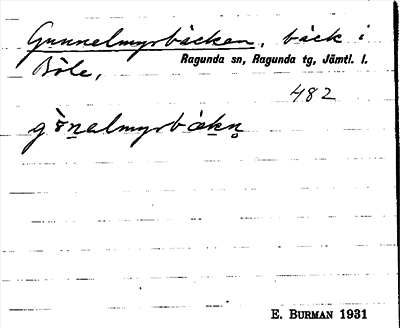 Gunnelmyrbäcken, bäck i
Böle, Ragunda sn, Ragunda tg, Jämtl. l.
482
E. BURMAN 1931